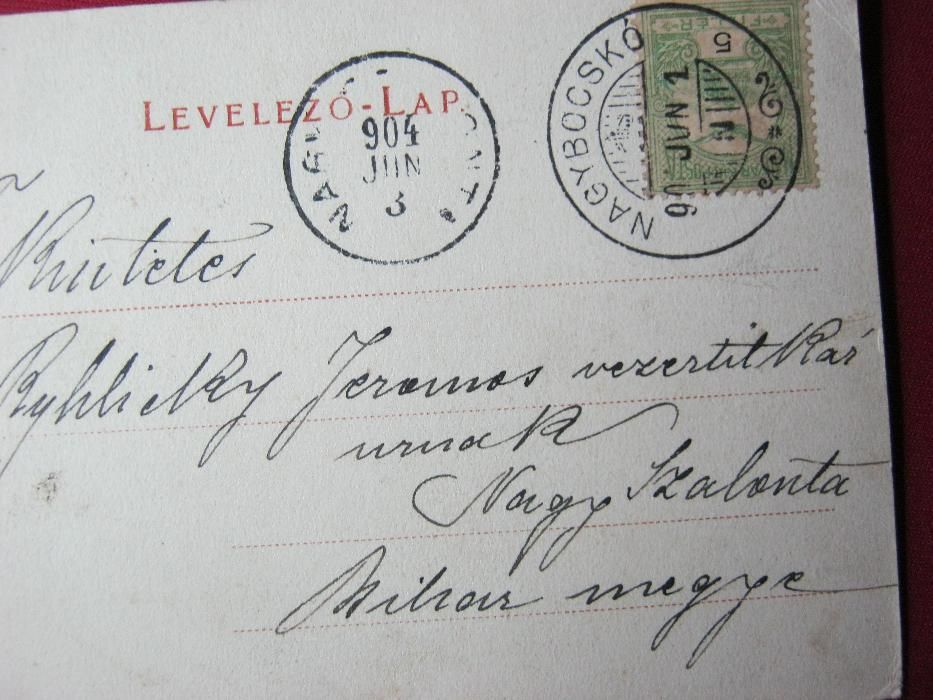 LEVELEZŐ-LAP
904
JUN
3
NAGYBOCSKÓ
JUN 1
5
FILLÉR
Ryhlicky Jeromos vezertitkár
urnak
Nagy Szalonta
Bihar megye